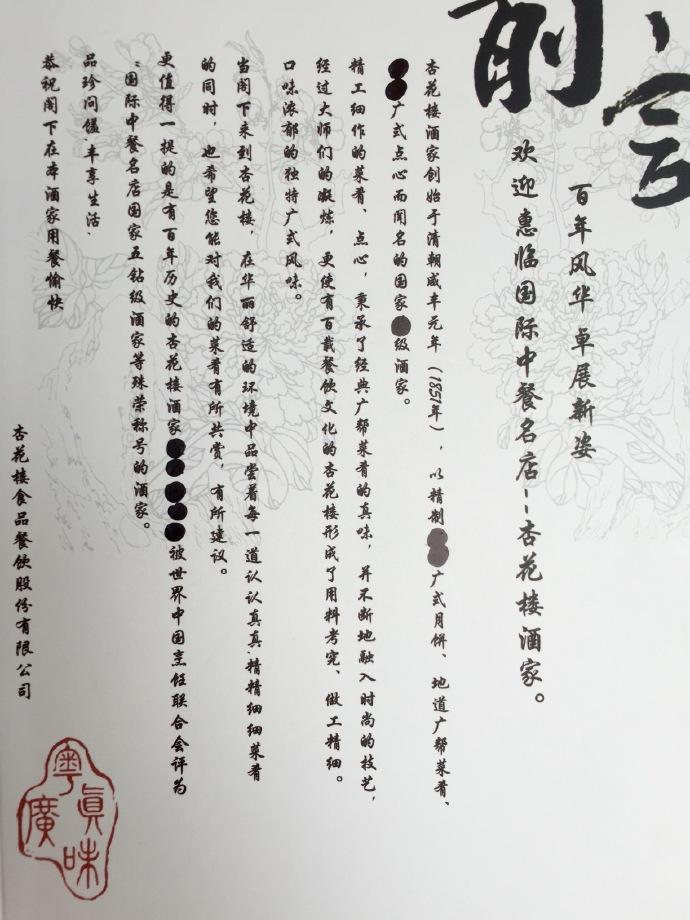 前言
百年风华 卓展新姿
欢迎惠临国际中餐名店--杏花楼酒家。
杏花楼酒家创始于清朝咸丰元年（1851年），以精制广式月饼、地道广帮菜肴、
广式点心而闻名的国家级酒家。
精工细作的菜肴、点心，秉承了经典广帮菜肴的真味，并不断地融入时尚的技艺，
经过大师们的凝炼，更使有百载餐饮文化的杏花楼形成了用料考究、做工精细。
口味浓郁的独特广式风味。
当阁下来到杏花楼，在华丽舒适的环境中品尝着每一道认认真真，精精细细菜肴
的同时，也希望您能对我们的菜肴有所共赏，有所建议。
更值得一提的是有百年历史的杏花楼酒家被世界中国烹饪联合会评为
“国际中餐名店国家五钻级酒家等殊荣称号的酒家。
品珍问馐，丰享生活，
恭祝阁下在本酒家用餐愉快
杏花楼食品餐饮股份有限公司
粤廣
真味